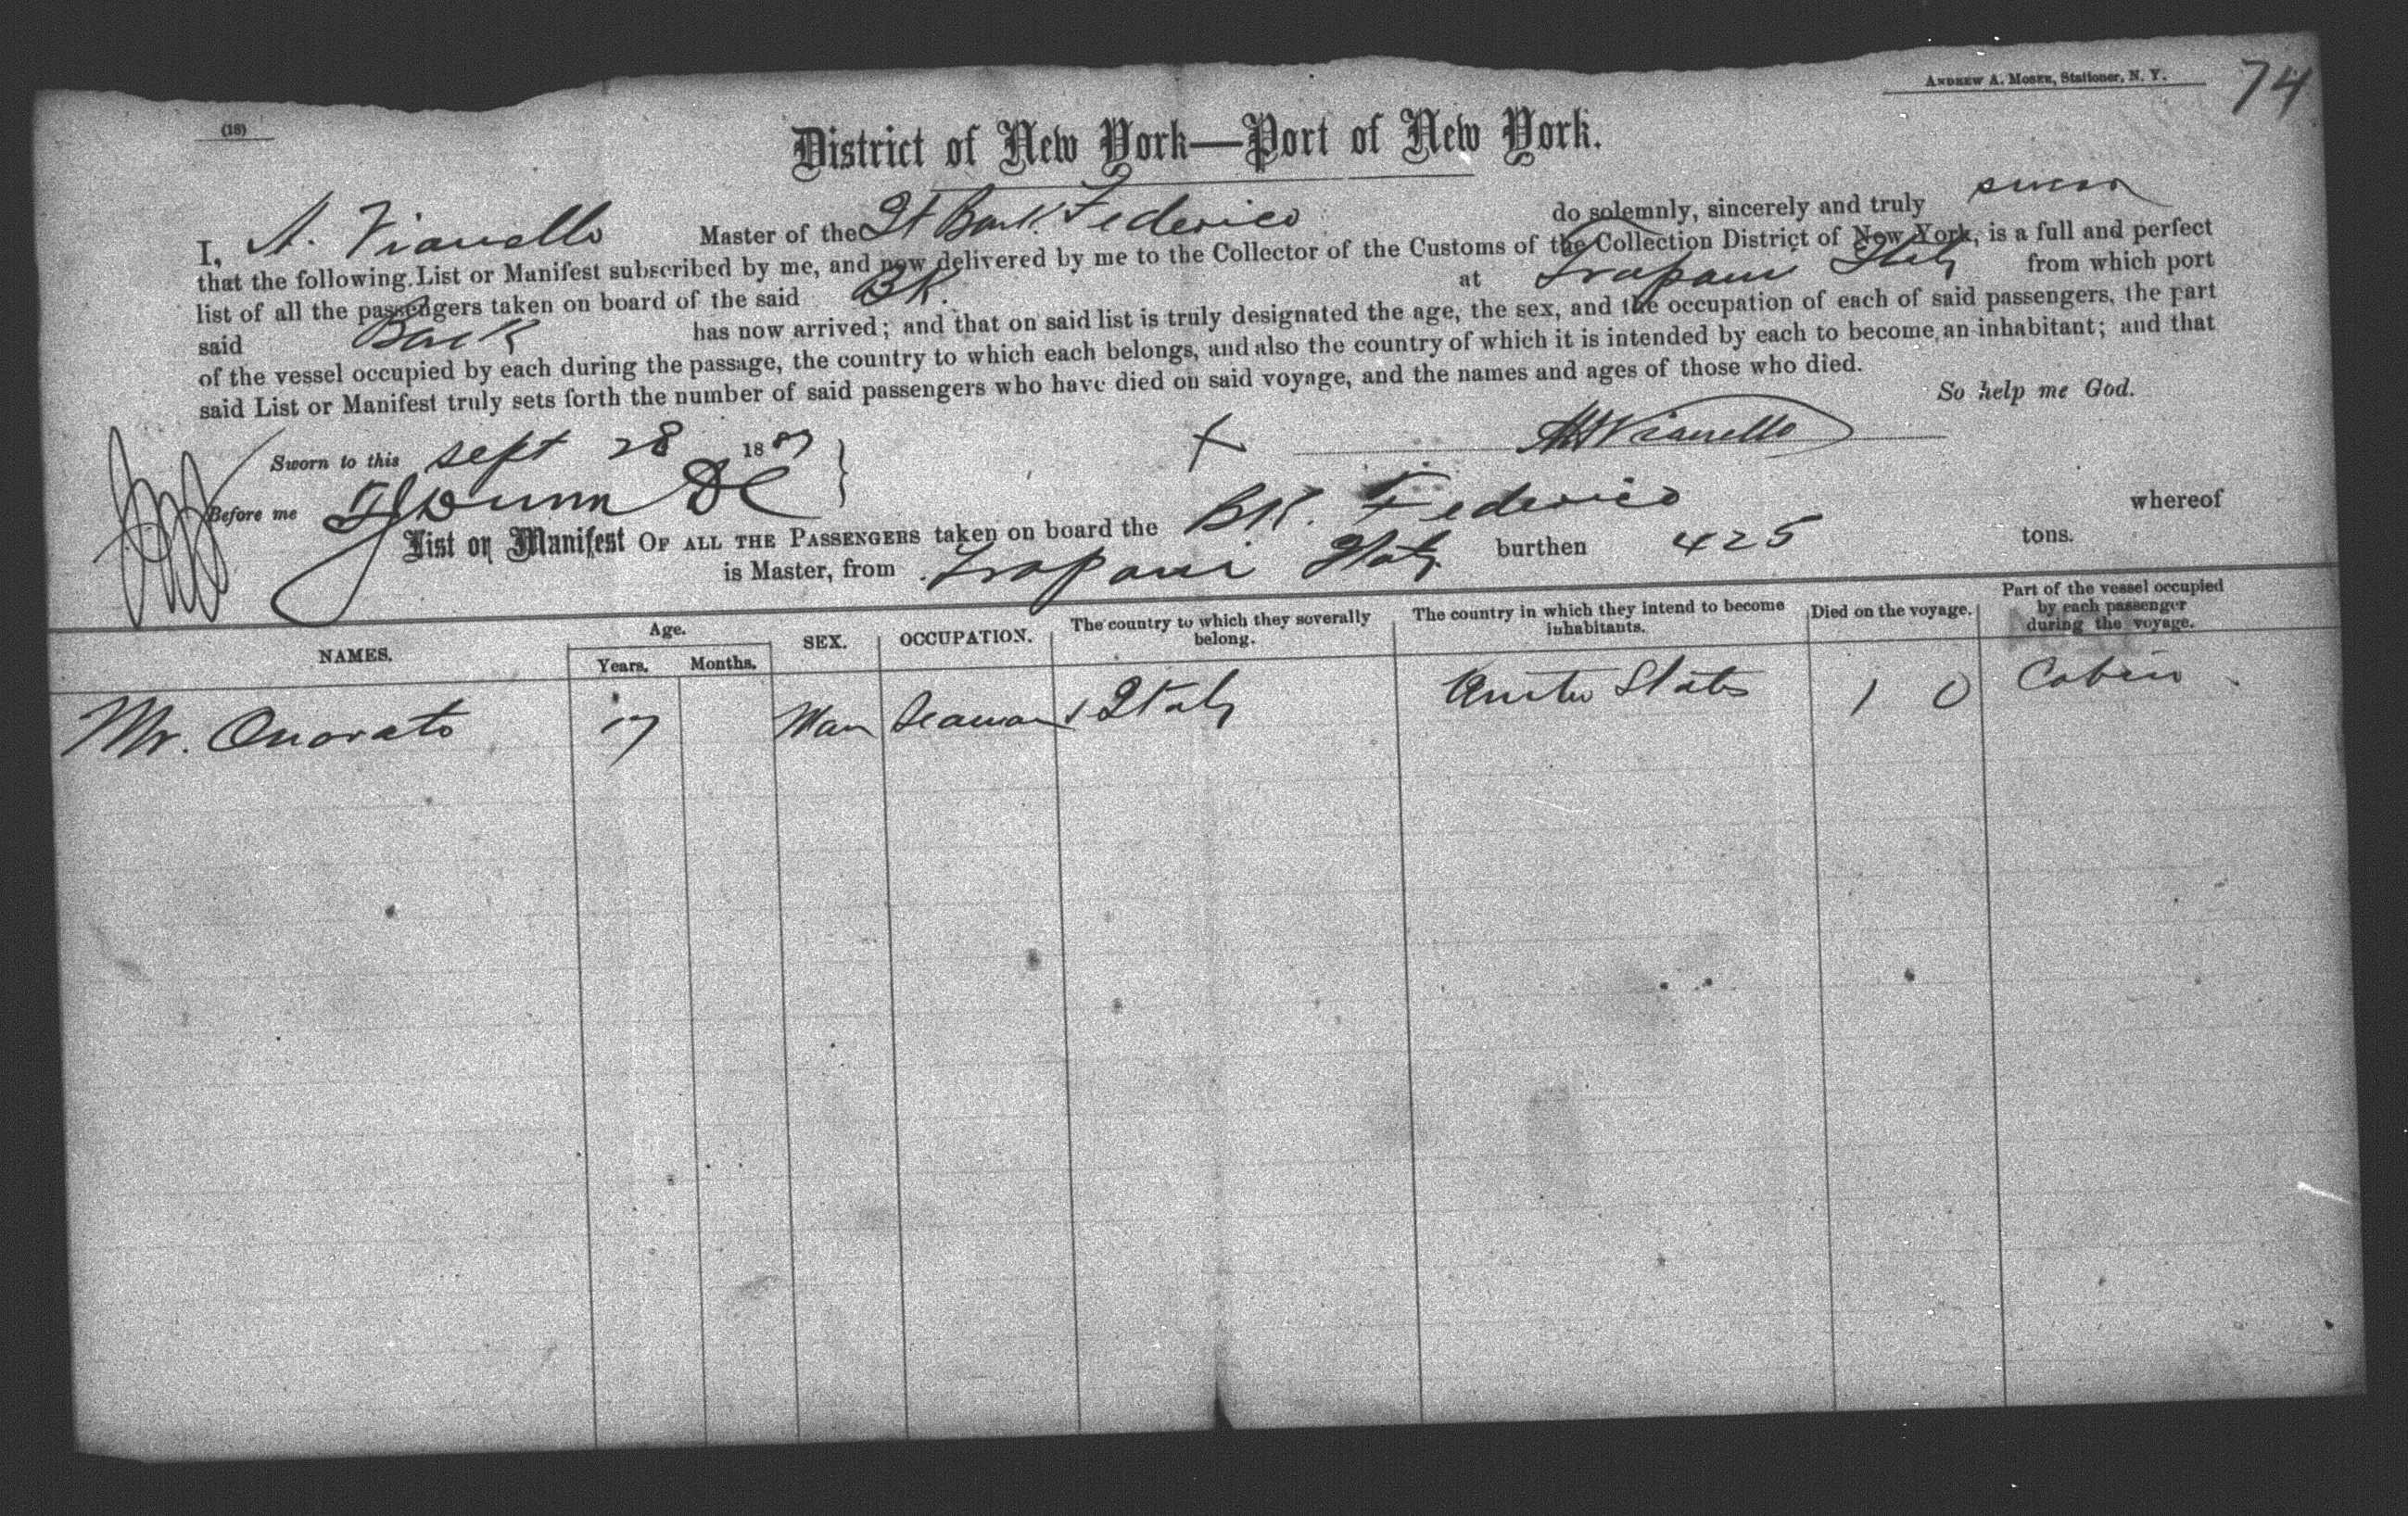 (18)
ANDREW A. MOSER, Stationer, N. Y.
74
District of New York—Port of New York.
I, A. Vianello Master of the It Bark Federico do solemnly, sincerely and truly swear
that the following List or Manifest subscribed by me, and now delivered by me to the Collector of the Customs of the Collection District of New York, is a full and perfect
list of all the passengers taken on board of the said BK. at Trapani Italy from which port
said Bark has now arrived; and that on said list is truly designated the age, the sex, and the occupation of each of said passengers, the part
of the vessel occupied by each during the passage, the country to which each belongs, and also the country of which it is intended by each to become an inhabitant; and that
said List or Manifest truly sets forth the number of said passengers who have died on said voyage, and the names and ages of those who died.
So help me God.
Sworn to this Sept 28 1887 X Vianello
Before me Dunn DC
List or Manifest OF ALL THE PASSENGERS taken on board the BK. Federico whereof
is Master, from Trapani Italy burthen 425 tons.
NAMES. Age. Years. Months. SEX. OCCUPATION. The country to which they severally belong. The country in which they intend to become inhabitants. Died on the voyage. Part of the vessel occupied by each passenger during the voyage.
Mr. Onorato 17 Man Seaman Italy United States 1 0 Cabin